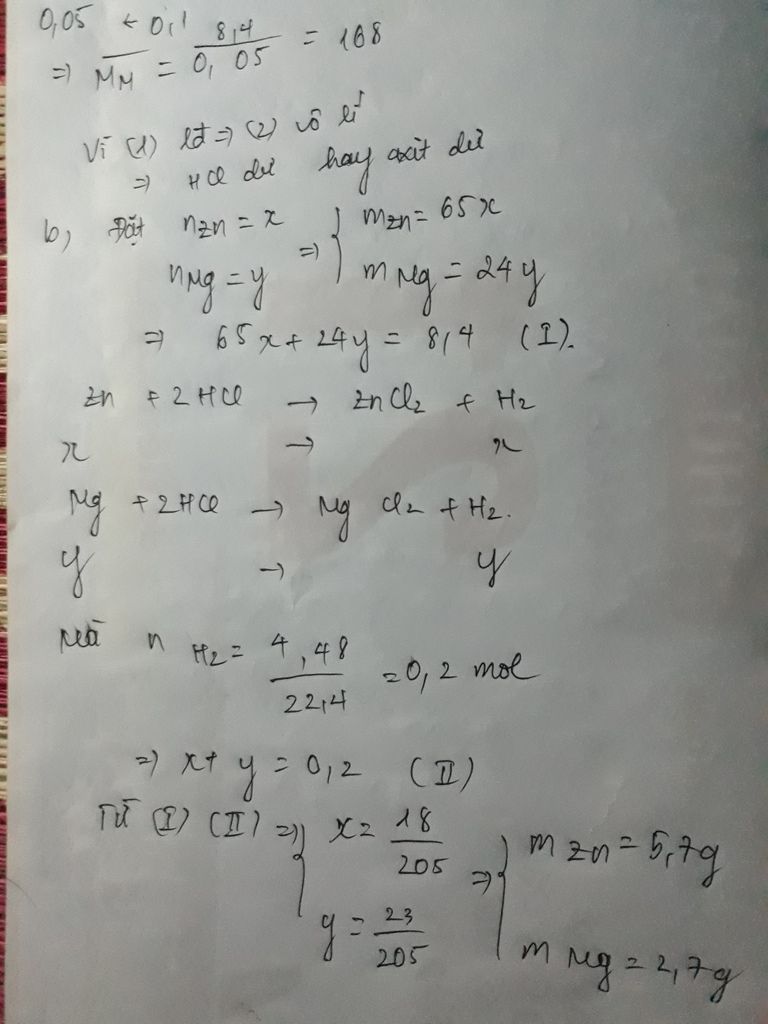 0,05 ← 0,1
⇒ M̅M̅ = 8,4 / 0,05 = 168
Vì (1) lđ ⇒ (2) vô lí
⇒ HCl dư hay axit dư
b, Đặt nZn = x ⇒ { mZn = 65x
nMg = y mMg = 24y
⇒ 65x + 24y = 8,4 (I).
Zn + 2HCl → ZnCl2 + H2
x → x
Mg + 2HCl → MgCl2 + H2.
y → y
Mà nH2 = 4,48 / 22,4 = 0,2 mol
⇒ x + y = 0,2 (II)
Từ (I) (II) ⇒ { x = 18 / 205 ⇒ { mZn = 5,7g
y = 23 / 205 mMg = 2,7g